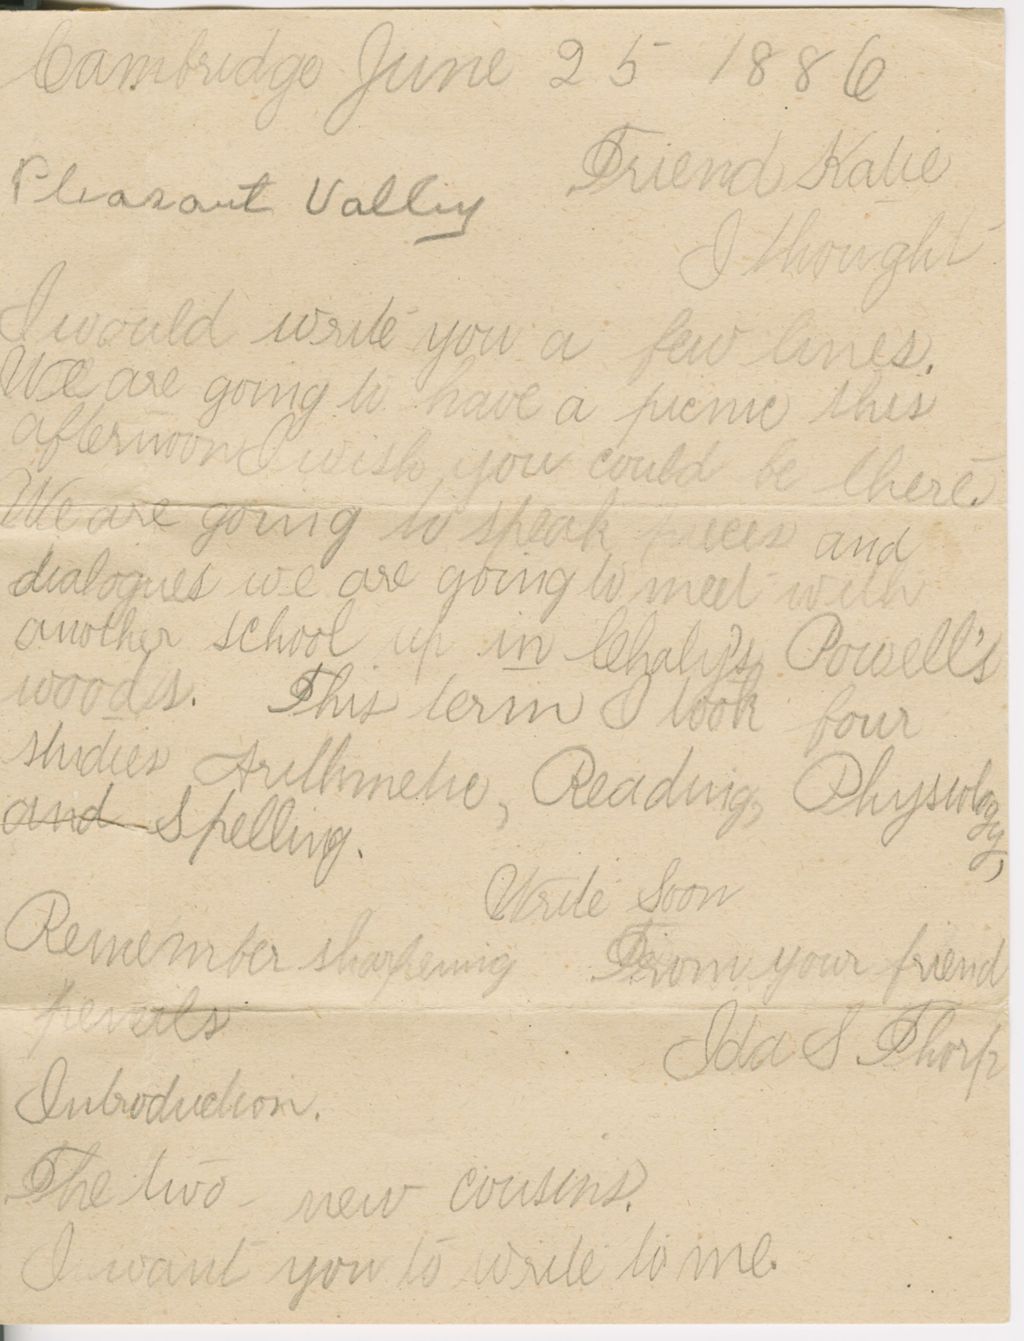 Cambridge June 25 1886
Friend Katie
Pleasant Valley
I thought
I would write you a few lines.
We are going to have a picnic this
afternoon I wish you could be there.
We are going to speak pieces and
dialogues we are going to meet with
another school up in Powell's
woods. This term I took four
studies Arithmetic, Reading, Physiology,
and Spelling.
Write Soon
Remember sharpening From your friend
pencils
Ida S Thorp
Introduction.
The two new cousins.
I want you to write to me.